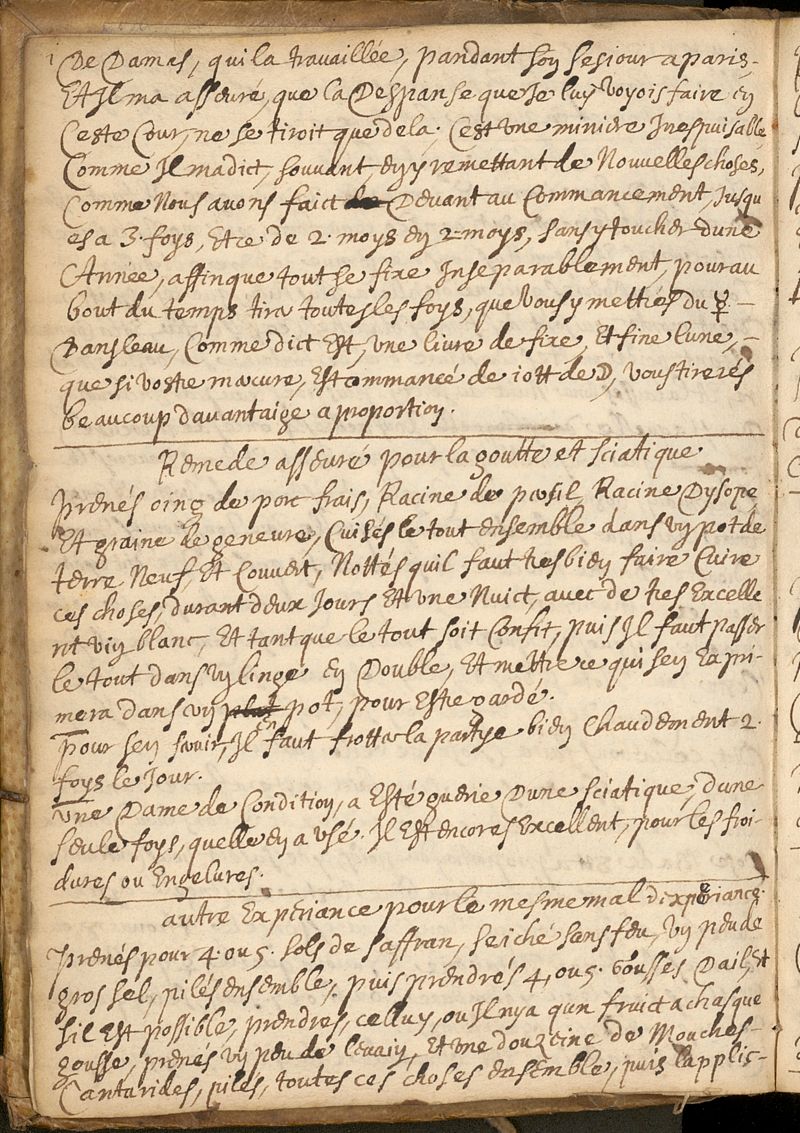 De Damas, qui la travaillée, pandant son sesiour a paris,
Et Il ma asseuré, que la Despanse que Je luy voyois faire en
Ceste Cour, ne se tiroit que de la, Cest une miniere Inespuisable,
Comme Il ma dict, souvant, en y remettant de Nouvelles choses,
Comme Nous avons faict de Devant au Commancement, Jusqu
es a 3. foys, Et ce de 2. moys en 2. moys, sans y toucher dune
Année, affin que tout se fixe Inseparablement, pour au
bout du temps tirer toutes les foys, que vous y mettiés du ☿ –
Dans leau, Comme dict Est, une livre de fixe, Et fine lune, –
que si vostre mercure, Est commancé de 10 tt de D, vous tirerés
beaucoup davantaige a proportion.
Remede asseuré pour la goutte et sciatique
Prenés oing de porc frais, Racine de persil, Racine Dysope
Et graine de genevre, Cuisés le tout ensemble dans un pot de
terre Neuf, Et Couvert, Nottés quil faut tres bien faire Cuire
ces choses, durant deux Jours Et une Nuict, avec de tres Excelle
nt vin blanc, Et tant que le tout soit Confit, puis Il faut passer
le tout dans un linge En Double, Et mettre ce qui sen Expri-
mera dans un plat pot, pour Estre gardé.
pour sen servir, Il en faut frotter la partye bien Chaudement 2.
foys le Jour.
Une Dame de Condition, a Esté guerie Dune sciatique, dune
seule foys, quelle en a usé. Il Est encores Excellent, pour les froi-
dures ou Engelures.
autre Experiance pour le mesme mal dexperiance.
Prenés pour 4. ou 5. sols de saffran, seiché sans feu, un peu de
gros sel, pilés ensemble, puis prendrés 4, ou 5. Gousses Dail, Et
sil Est possible, prendres, celluy, ou Il nya qun fruict a chasque
gousse, prenés un peu de levain, Et une douzeine de Mouches-
Cantarides, piles, toutes ces choses ensemble, puis lapplic-